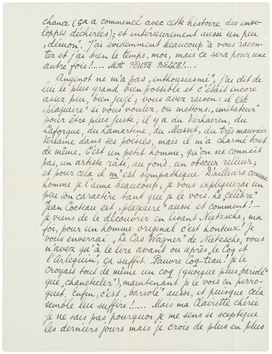 chance (ça a commencé avec cette histoire des enve-
loppes déchirées); et intérieurement aussi un peu
"démon". J'ai évidemment beaucoup à vous racon-
ter et j'ai bien le temps, mais ce sera pour une
autre fois!....
Angenot ne m'a pas "enthousiasmé", j'ai dit de
lui le plus grand bien possible et c'était encore
assez peu, bien juste; vous avez raison: il est
"blagueur" si vous voulez, ou mettons, "imitateur"
pour être plus juste, il y a du Verhaeren, du
Laforgue, du Lamartine, du Musset, du très mauvais
Verlaine dans ses poésies, mais il m'a charmé tout
de même, c'est un petit homme, qu'on ne connait
pas, un artiste raté, au fond, un obscur rêveur;
et pour cela il m'est sympathique. D'ailleurs comme
homme je l'aime beaucoup, je vous expliquerai un
peu son caractère tant que je le vois. Le célèbre
Jean Cocteau est "blagueur" aussi et comment!
Je viens de le découvrir en lisant Nietzsche; ma
foi, pour un homme original c'est honteux! Je
vous enverrai "Le Cas Wagner" de Nietzsche, vous
n'avez qu'à le lire avant ou après le Coq et
l'Arlequin, ça suffit. Pauvre Coq-teau! je le
croyais tout de même un coq (quoique plus "bariolé"
que "chantecler"), maintenant je le vois en perro-
quet. Enfin, c'est "bariolé" aussi, et puisque cela
semble lui suffire!.... Mais ma Clairette chérie
je ne sais pas pourquoi je me sens si sceptique
les derniers jours mais je crois de plus en plus